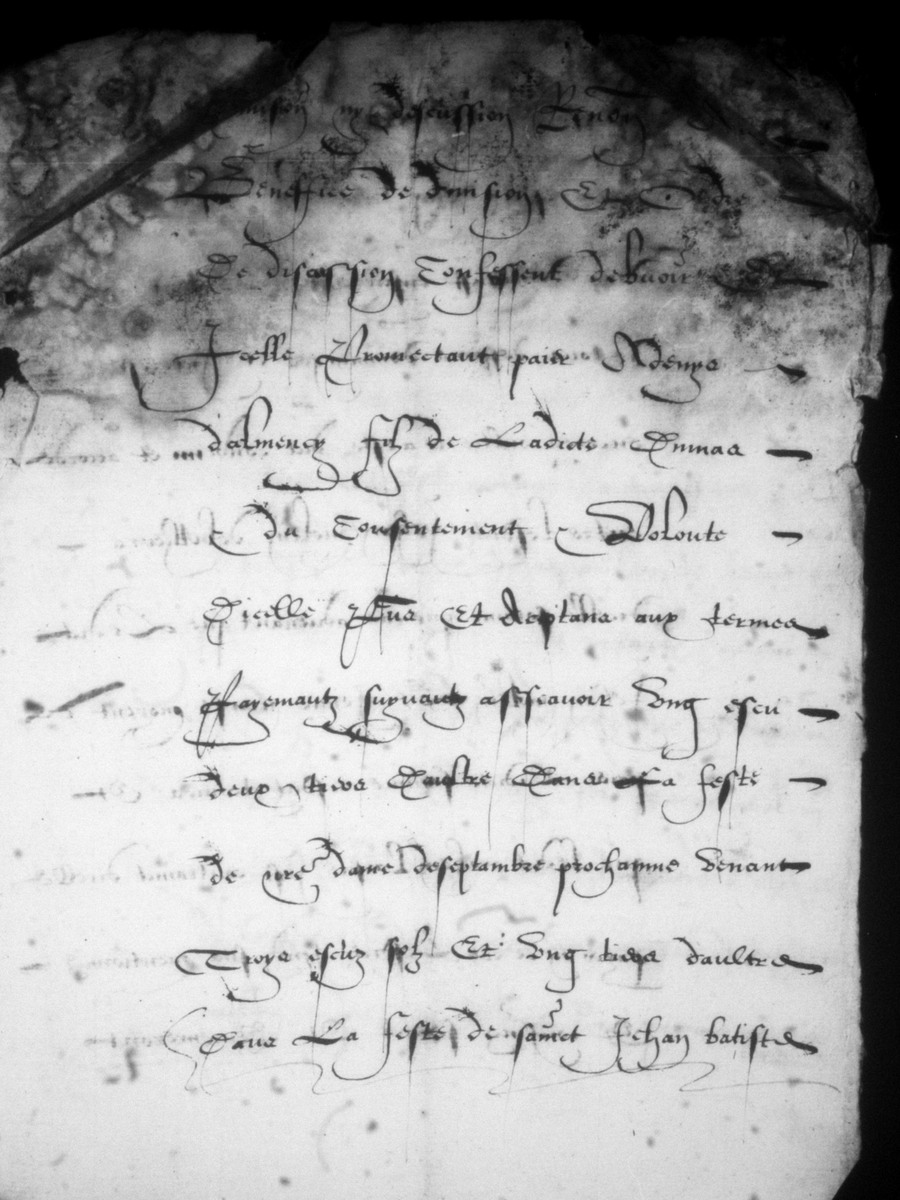 division ny discussion Renon
Beneffice de division Et Ordre
De discussion Confessent debvoir Et
Icelle Promectant paier A denys
dalmency filz de Ladicte Dumas
Du Consentement Volonte
Dicelle Pnte Et Aceptans aux termes
Payemantz suyvantz assscavoir Ung escu
deux tiers Daultre Dans La feste
de nre dame de septambre prochayne venant
Troys escuz solz Et Ung tiers daultre
Dans La feste de sainct Jehan batiste